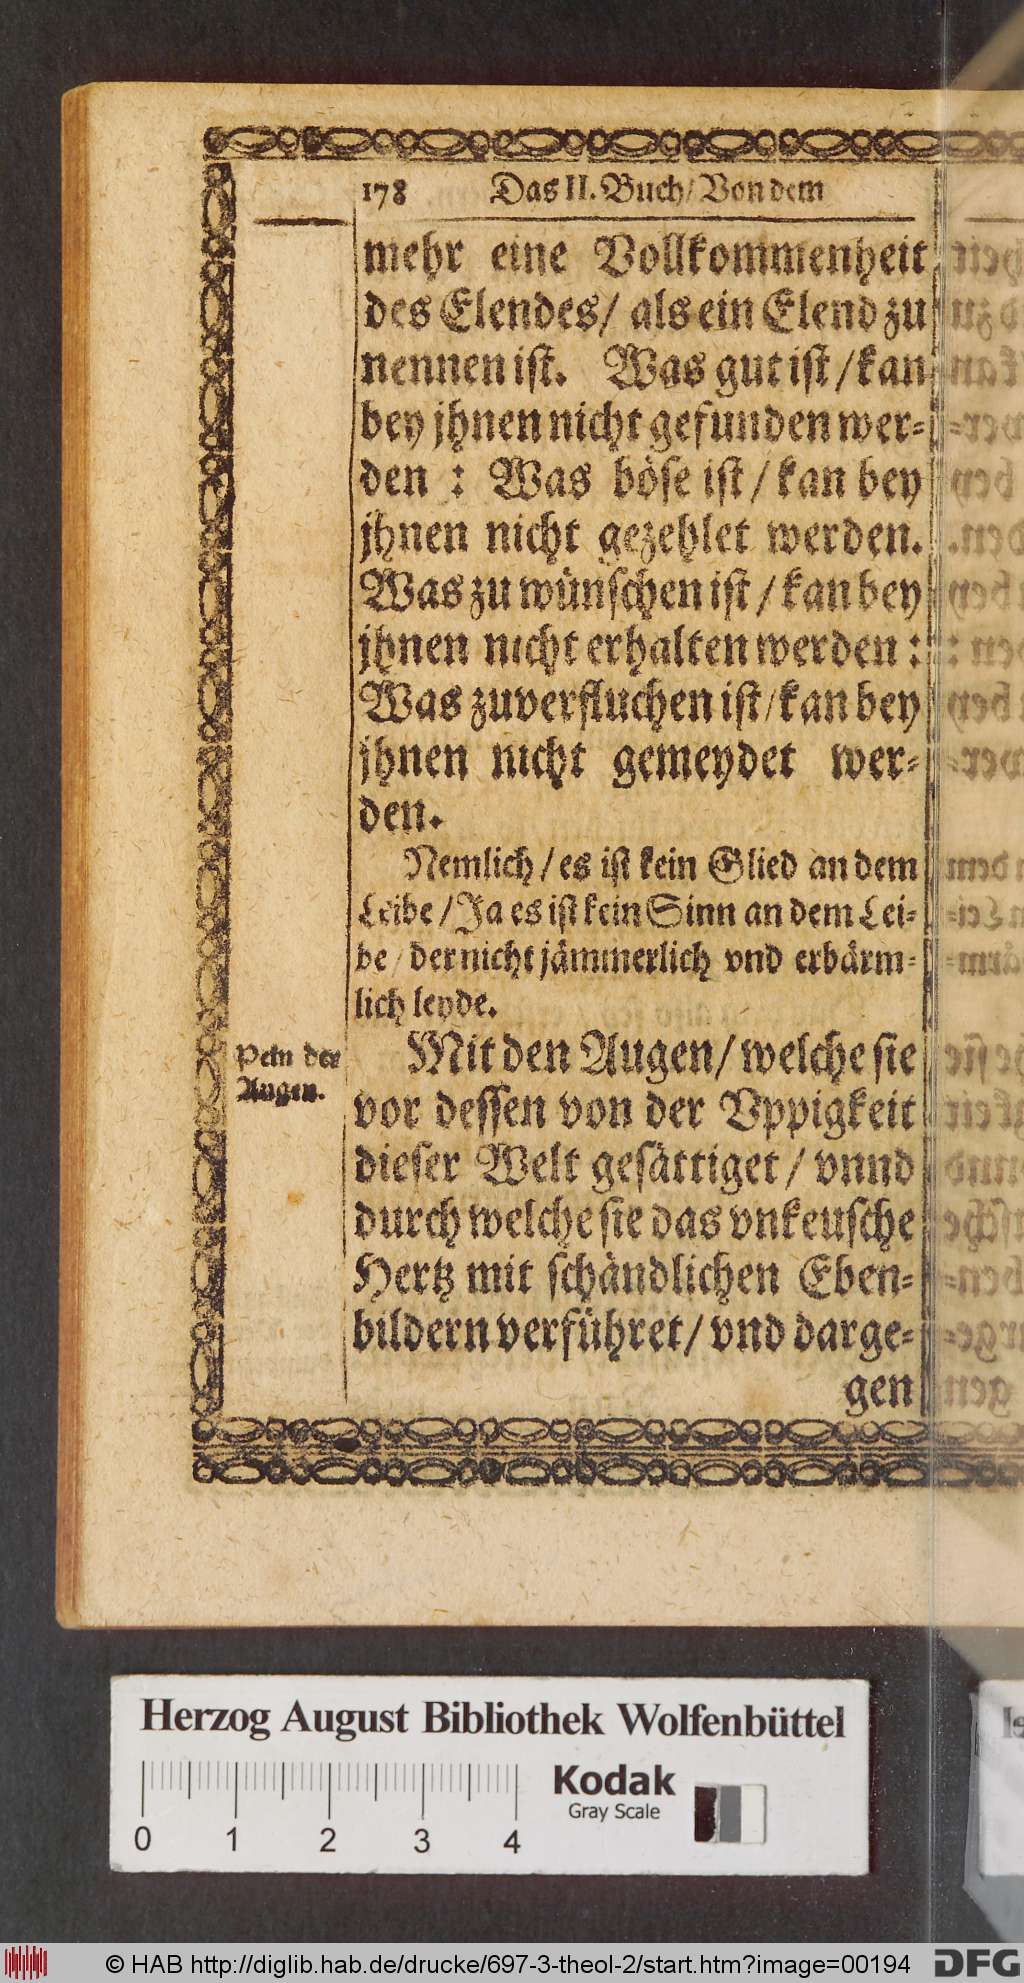 178 Das II. Buch/ Von dem
mehr eine Vollkommenheit
des Elendes/ als ein Elend zu
nennen ist. Was gut ist/ kan
bey jhnen nicht gefunden wer-
den : Was böse ist/ kan bey
jhnen nicht gezehlet werden.
Was zu wünschen ist/ kan bey
jhnen nicht erhalten werden :
Was zuverfluchen ist/ kan bey
jhnen nicht gemeydet wer-
den.
Nemlich/ es ist kein Glied an dem
Leibe/ Ja es ist kein Sinn an dem Lei-
be/ der nicht jämmerlich vnd erbärm-
lich leyde.
Pein der
Augen.
Mit den Augen/ welche sie
vor dessen von der Vppigkeit
dieser Welt gesättiget/ vnnd
durch welche sie das vnkeusche
Hertz mit schändlichen Eben-
bildern verführet/ vnd darge-
gen
Herzog August Bibliothek Wolfenbüttel
0 1 2 3 4
Kodak
Gray Scale
© HAB http://diglib.hab.de/drucke/697-3-theol-2/start.htm?image=00194
DFG